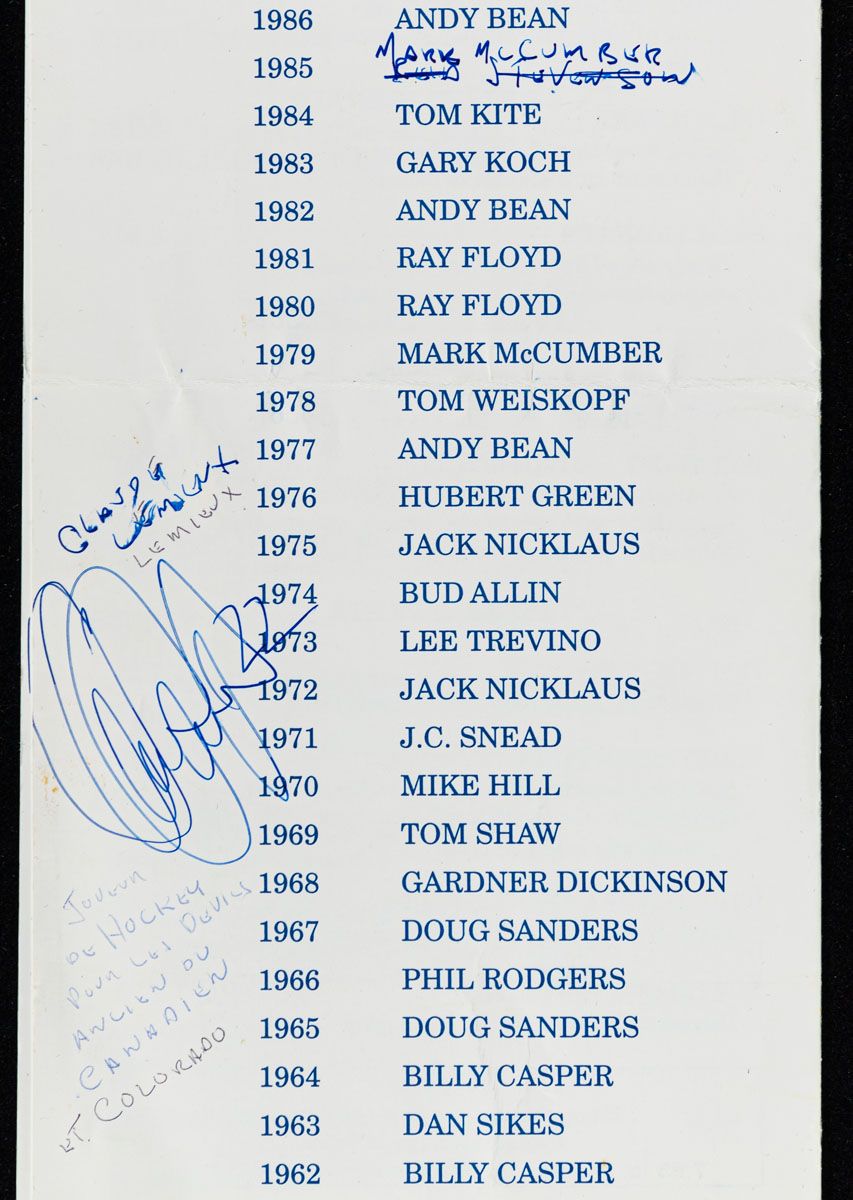 1986 ANDY BEAN
MARK McCUMBER
1985 STEVENSON
1984 TOM KITE
1983 GARY KOCH
1982 ANDY BEAN
1981 RAY FLOYD
1980 RAY FLOYD
1979 MARK McCUMBER
1978 TOM WEISKOPF
1977 ANDY BEAN
1976 HUBERT GREEN
1975 JACK NICKLAUS
1974 BUD ALLIN
1973 LEE TREVINO
1972 JACK NICKLAUS
1971 J.C. SNEAD
1970 MIKE HILL
1969 TOM SHAW
1968 GARDNER DICKINSON
1967 DOUG SANDERS
1966 PHIL RODGERS
1965 DOUG SANDERS
1964 BILLY CASPER
1963 DAN SIKES
1962 BILLY CASPER
CLAUDE
LEMIEUX
LEMIEUX
JOUEUR
DE HOCKEY
POUR LES DEVILS
ANCIEN DU
CANADIEN
ET. COLORADO